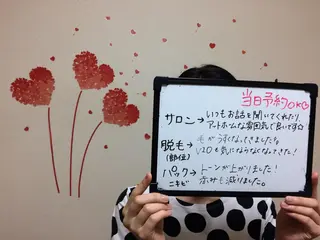 当日予約OK♡
サロン→いつもお話を聞いてくれたり、
アットホームな雰囲気で良いです☆
脱毛→毛がうすくなってきました!!
(部位) VIOも気にならなくなってきた!
パック→トーンが上がりました!
ニキビ 赤みも減りました。